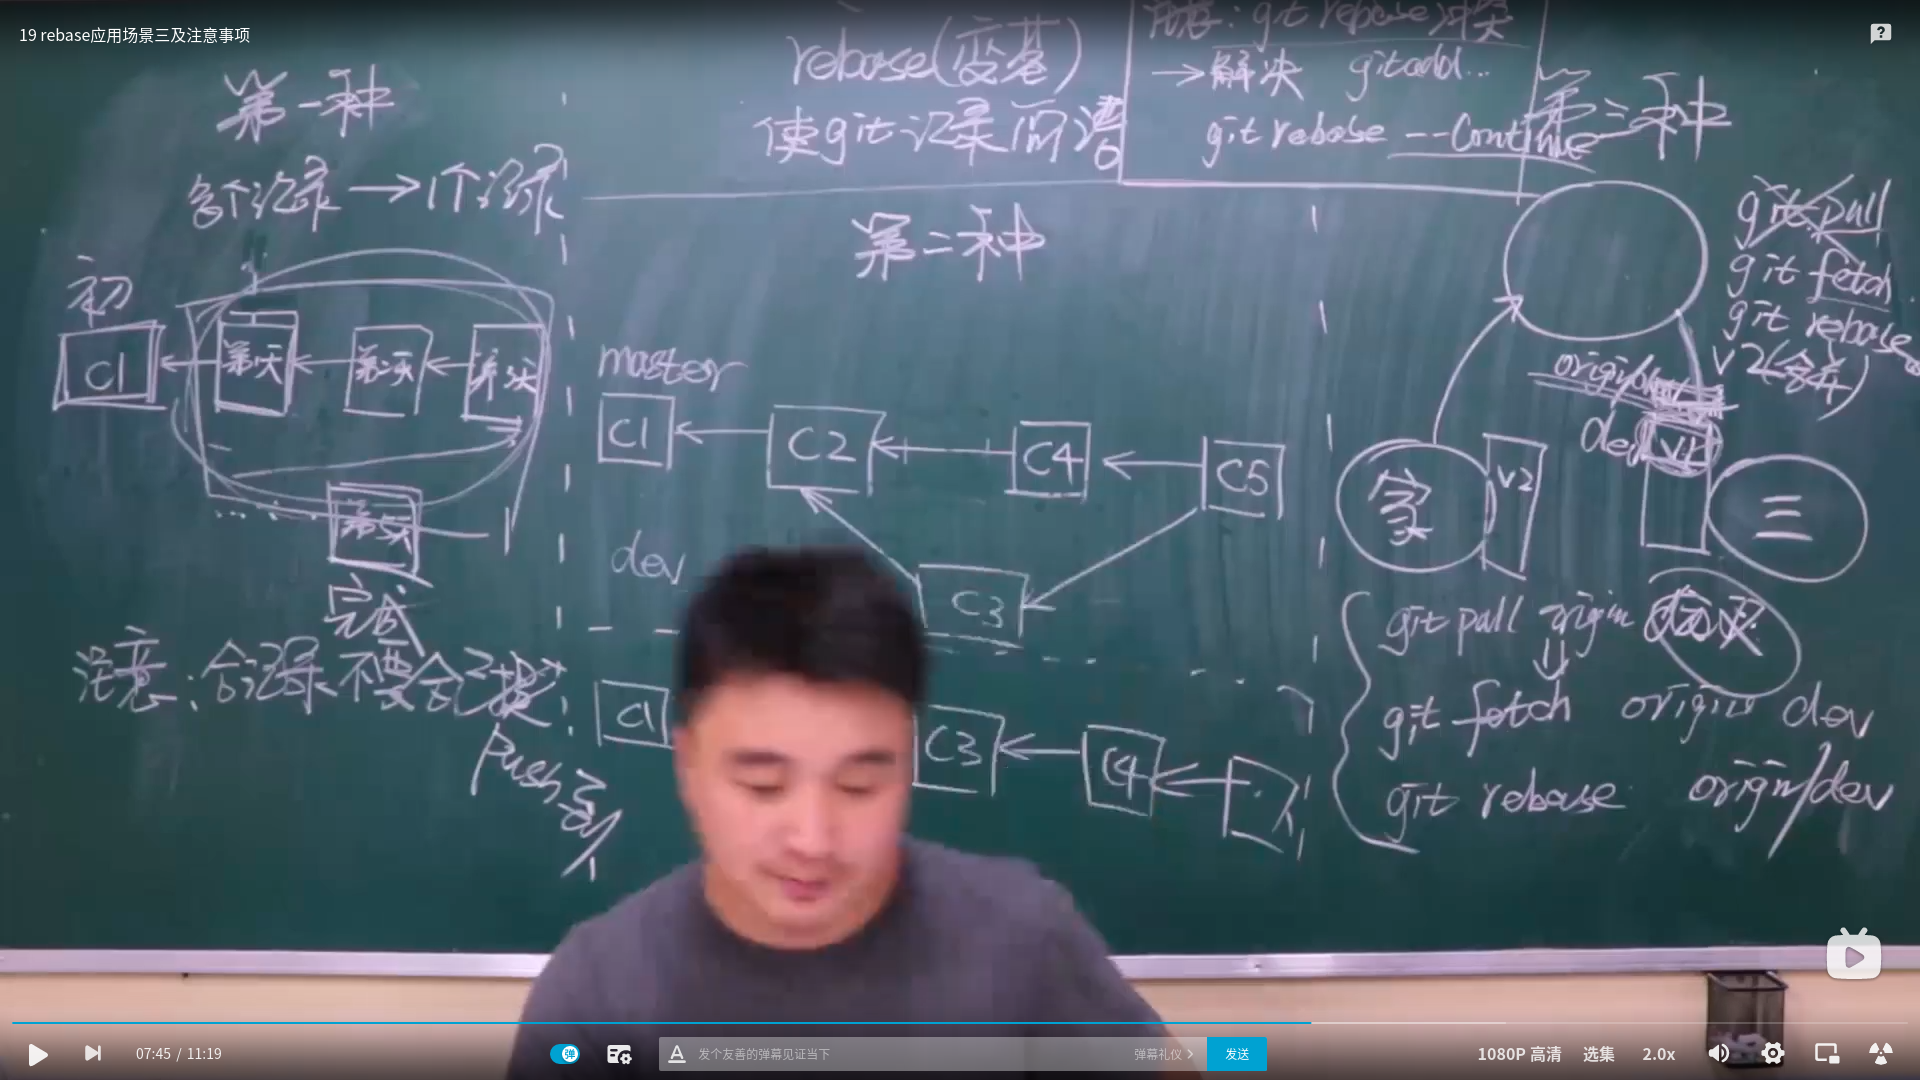 19 rebase应用场景三及注意事项
rebase(变基)
使git记录简洁
注意:git rebase冲突
→解决 git add...
git rebase --continue
第一种
多个记录→1个记录
初
C1
第1天
第2天
第3天
第5天
完成
注意:合记录不要合已提交
push到
第二种
master
C1
C2
C4
C5
dev
C3
C1
C3
C4
第三种
git pull
git fetch
git rebase
v2(合并)
dev
v1
家
v2
三
git pull origin
git fetch origin dev
git rebase origin/dev
07:45 / 11:19
弹
发个友善的弹幕见证当下
弹幕礼仪 >
发送
1080P 高清
选集
2.0x